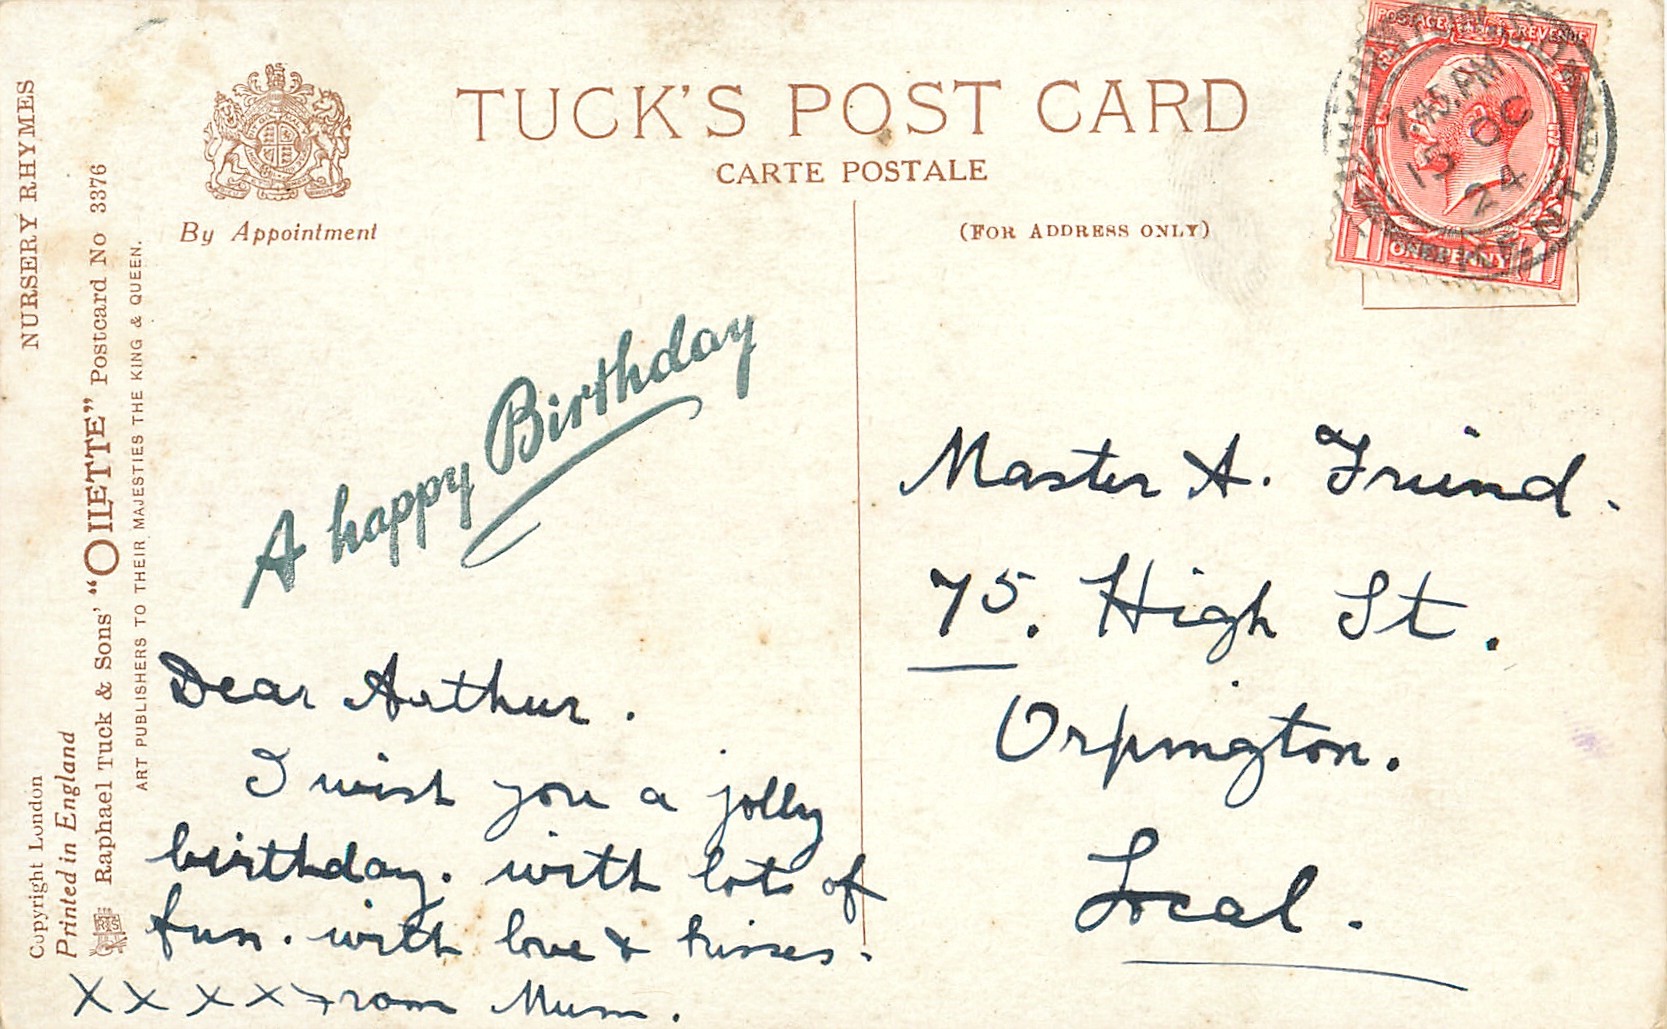 TUCK'S POST CARD
CARTE POSTALE
By Appointment
(FOR ADDRESS ONLY)
NURSERY RHYMES
Copyright London
Printed in England
Raphael Tuck & Sons' "OILETTE" Postcard No 3376
ART PUBLISHERS TO THEIR MAJESTIES THE KING & QUEEN.
A happy Birthday
Dear Arthur.
I wish you a jolly
birthday. with lots of
fun. with love & kisses.
X X X X From Mum.
POSTAGE REVENUE
7.45 PM
15 OC
24
1 ONE PENNY 1
Master A. Friend.
75. High St.
Orpington.
Local.